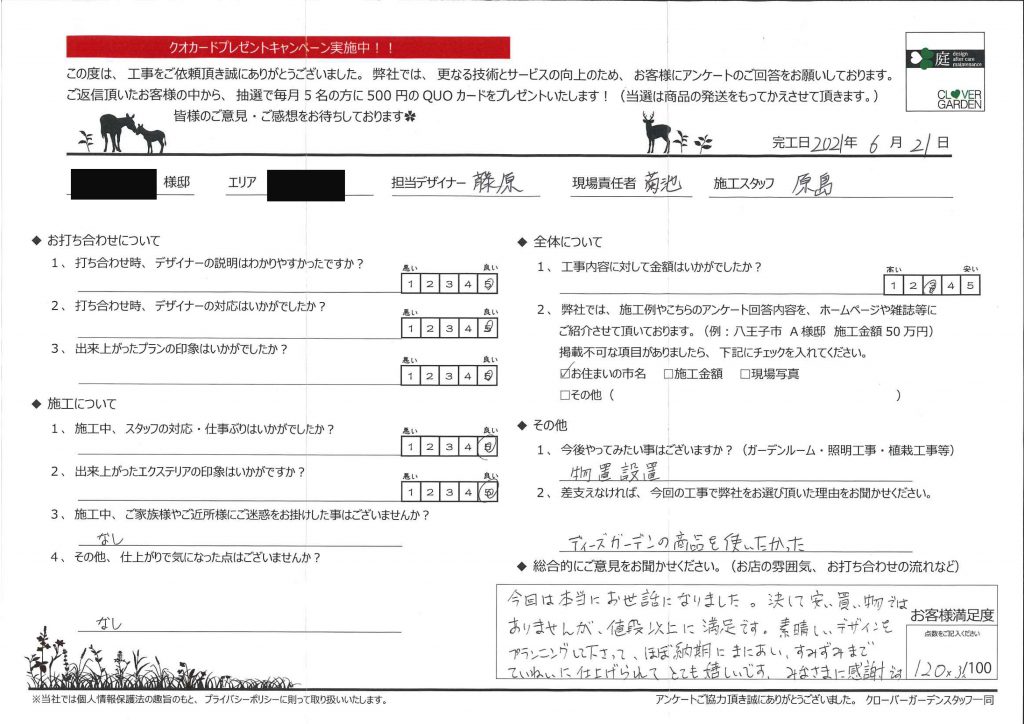 クオカードプレゼントキャンペーン実施中！！
この度は、工事をご依頼頂き誠にありがとうございました。弊社では、更なる技術とサービスの向上のため、お客様にアンケートのご回答をお願いしております。
ご返信頂いたお客様の中から、抽選で毎月５名の方に500円のQUOカードをプレゼントいたします！（当選は商品の発送をもってかえさせて頂きます。）
皆様のご意見・ご感想をお待ちしております✽
庭 design after care maintenance
CLOVER GARDEN
完工日 2021年 6 月 21 日
様邸 エリア 担当デザイナー 藤原 現場責任者 菊池 施工スタッフ 原島
◆ お打ち合わせについて
１、打ち合わせ時、デザイナーの説明はわかりやすかったですか？
悪い 良い
1 2 3 4 5
２、打ち合わせ時、デザイナーの対応はいかがでしたか？
悪い 良い
1 2 3 4 5
３、出来上がったプランの印象はいかがでしたか？
悪い 良い
1 2 3 4 5
◆ 施工について
１、施工中、スタッフの対応・仕事ぶりはいかがでしたか？
悪い 良い
1 2 3 4 5
２、出来上がったエクステリアの印象はいかがですか？
悪い 良い
1 2 3 4 5
３、施工中、ご家族様やご近所様にご迷惑をお掛けした事はございませんか？
なし
４、その他、仕上がりで気になった点はございませんか？
なし
◆ 全体について
１、工事内容に対して金額はいかがでしたか？
高い 安い
1 2 3 4 5
２、弊社では、施工例やこちらのアンケート回答内容を、ホームページや雑誌等に
ご紹介させて頂いております。（例：八王子市 A様邸 施工金額50万円）
掲載不可な項目がありましたら、下記にチェックを入れてください。
☑お住まいの市名 □施工金額 □現場写真
□その他（ ）
◆ その他
１、今後やってみたい事はございますか？（ガーデンルーム・照明工事・植栽工事等）
物置設置
２、差支えなければ、今回の工事で弊社をお選び頂いた理由をお聞かせください。
ディーズガーデンの商品を使いたかった
◆ 総合的にご意見をお聞かせください。（お店の雰囲気、お打ち合わせの流れなど）
今回は本当にお世話になりました。決して安い買い物では
ありませんが、値段以上に満足です。素晴しいデザインを
プランニングして下さって、ほぼ納期にまにあい、すみずみまで
ていねいに仕上げられて とても嬉しいです。みなさまに感謝
お客様満足度
点数をご記入ください
120 /100
※当社では個人情報保護法の趣旨のもと、プライバシーポリシーに則って取り扱いいたします。
アンケートご協力頂き誠にありがとうございました。クローバーガーデンスタッフ一同